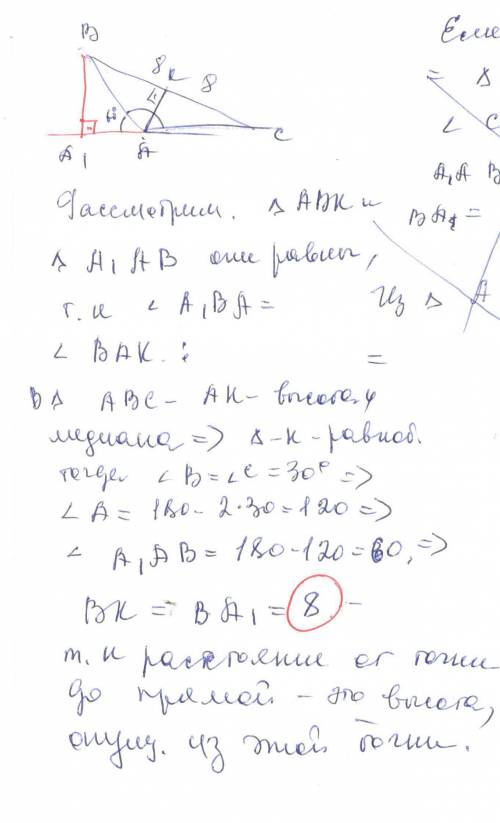 B
8 K 8
60
A₁ A C
Рассмотрим. Δ ABK и
Δ A₁AB они равны,
т.к ∠ A₁BA =
∠ BAK.
В Δ ABC - AK - высота и
медиана => Δ-к - равноб.
тогда ∠B = ∠C = 30° =>
∠A = 180 - 2·30 = 120 =>
∠ A₁AB = 180 - 120 = 60, =>
BK = BA₁ = 8 -
т.к расстояние от точки
до прямой - это высота,
опущ. из этой точки.
Если
= Δ
∠ C
A₁A B
BA₁ =
Из Δ A
=